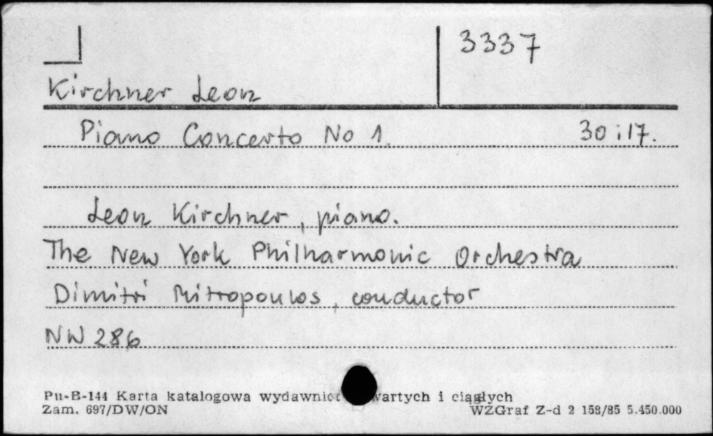 3337
Kirchner Leon
Piano Concerto No 1. 30:17.
Leon Kirchner, piano.
The New York Philharmonic Orchestra
Dimitri Mitropoulos, conductor
NW 286
Pu-B-144 Karta katalogowa wydawnict wartych i ciągłych
Zam. 697/DW/ON WZGraf Z-d 2 158/85 5.450.000